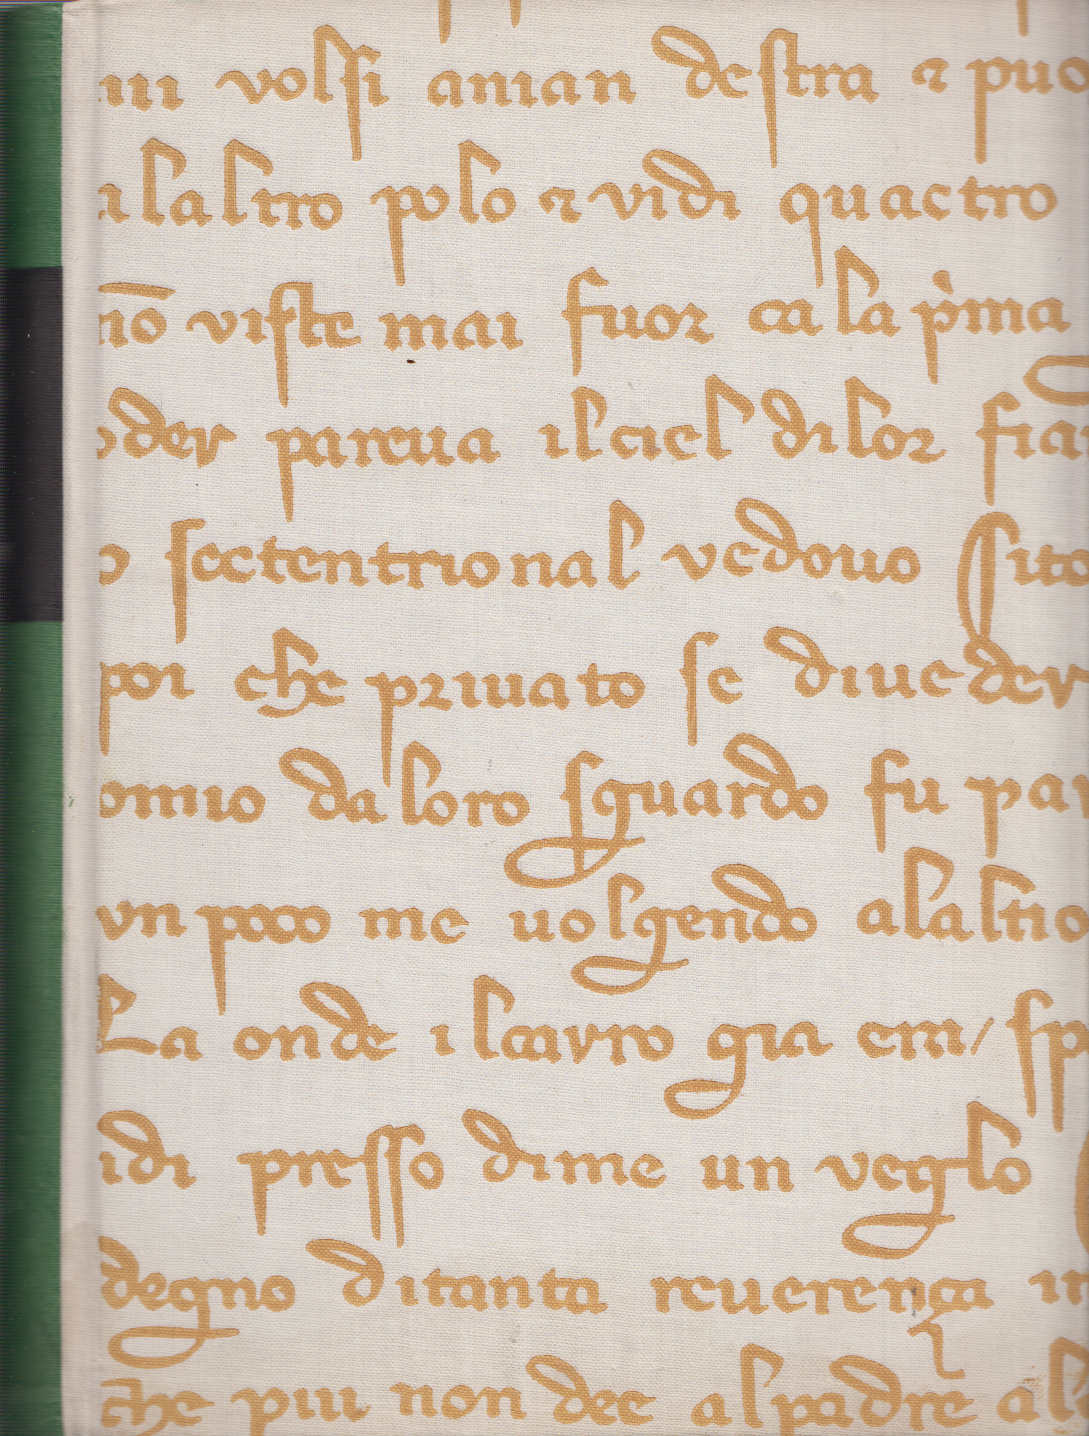 mi volsi aman destra ⁊ puo
a laltro polo ⁊ vidi quactro
nō viste mai fuor ca la p̍ma
oder pareua il ciel di lor fia
o sectentrional vedouo sito
poi che priuato se di ueder
omio da loro sguardo fu par
vn poco me uolgendo a laltro
La onde il carro gia era / sp
idi presso di me un veglo
degno di tanta reuerença in
che piu non dee al padre al